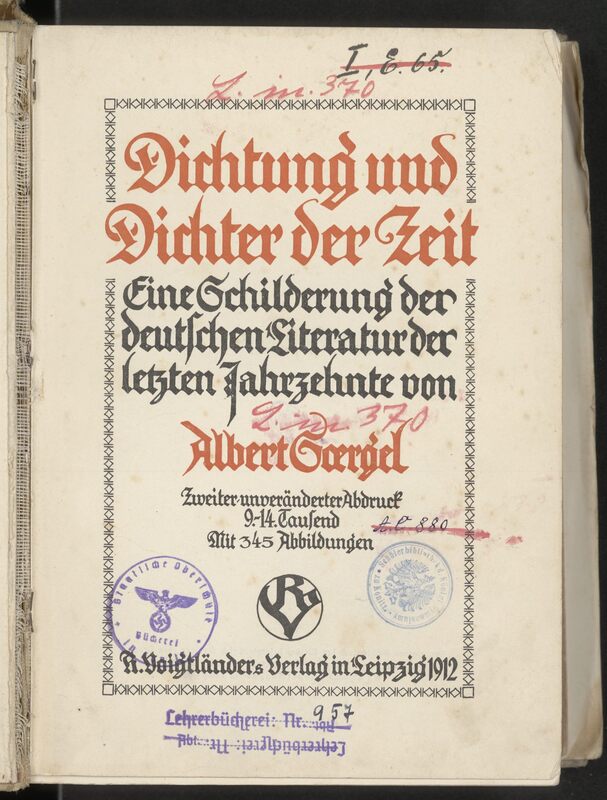 I, E. 65.
L. m. 370
Dichtung und
Dichter der Zeit
Eine Schilderung der
deutschen Literatur der
letzten Jahrzehnte von
L. m. 370
Albert Soergel
Zweiter unveränderter Abdruck
9.-14. Tausend
Mit 345 Abbildungen
880
Staatliche Oberschule
Bücherei
R. Voigtländers Verlag in Leipzig 1912
Lehrerbücherei: Nr. 957
Abt.
Lehrerbücherei: Nr.
Abt.